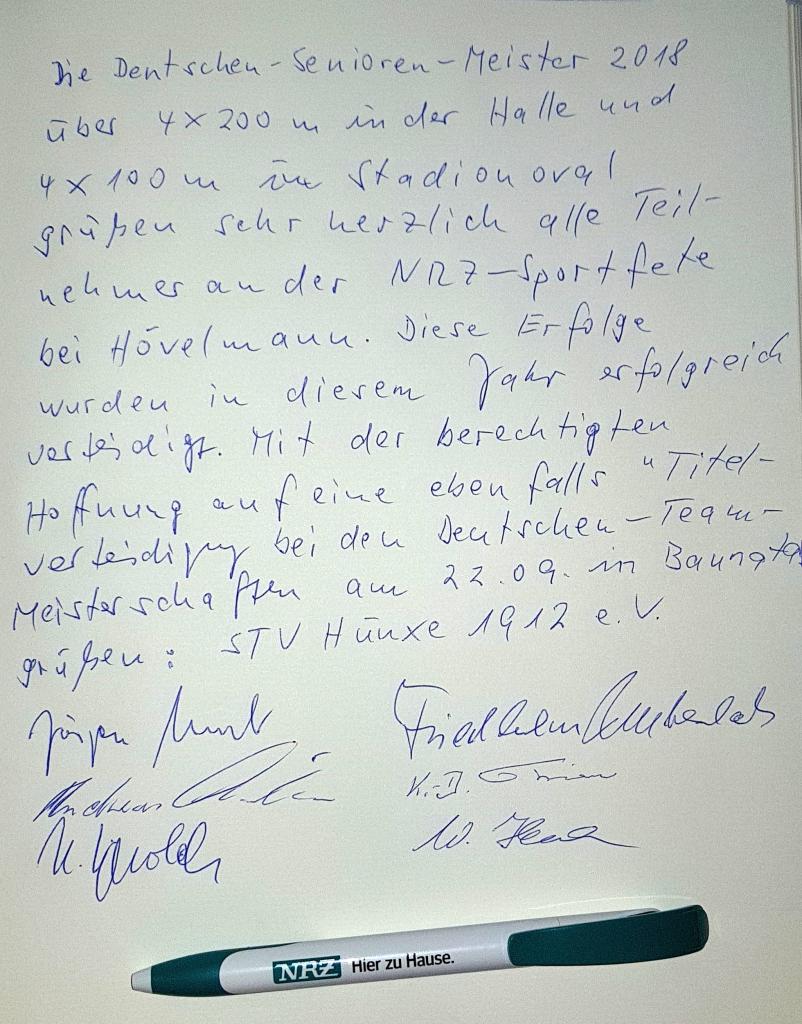 Die Deutschen-Senioren-Meister 2018
über 4x200 m in der Halle und
4x100 m im Stadionoval
grüßen sehr herzlich alle Teil-
nehmer an der NRZ-Sportfete
bei Hövelmann. Diese Erfolge
wurden in diesem Jahr erfolgreich
verteidigt. Mit der berechtigten
Hoffnung auf eine ebenfalls "Titel-
verteidigung bei den Deutschen-Team-
Meisterschaften am 22.09. in
grüßen: STV Hünxe 1912 e.V.
Jürgen Friedhelm
Andreas K.-D.
K. W.
NRZ Hier zu Hause.